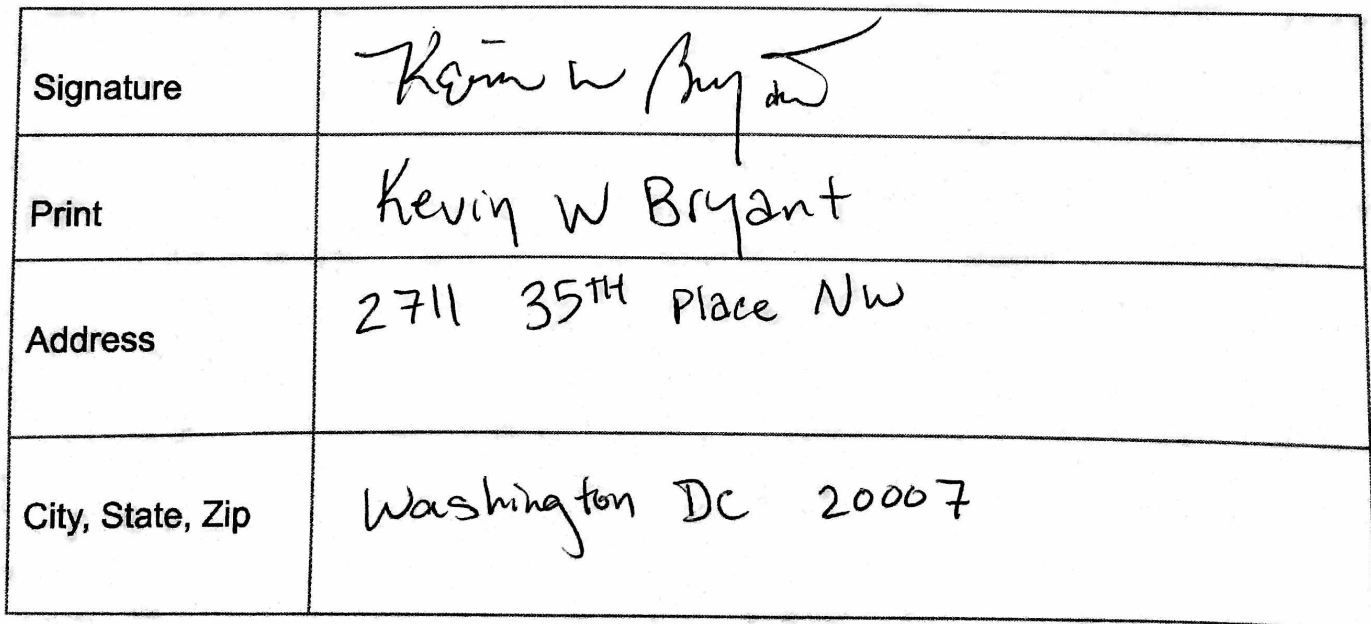 Signature Kevin W Bryant
Print Kevin W Bryant
Address 2711 35TH Place NW
City, State, Zip Washington DC 20007